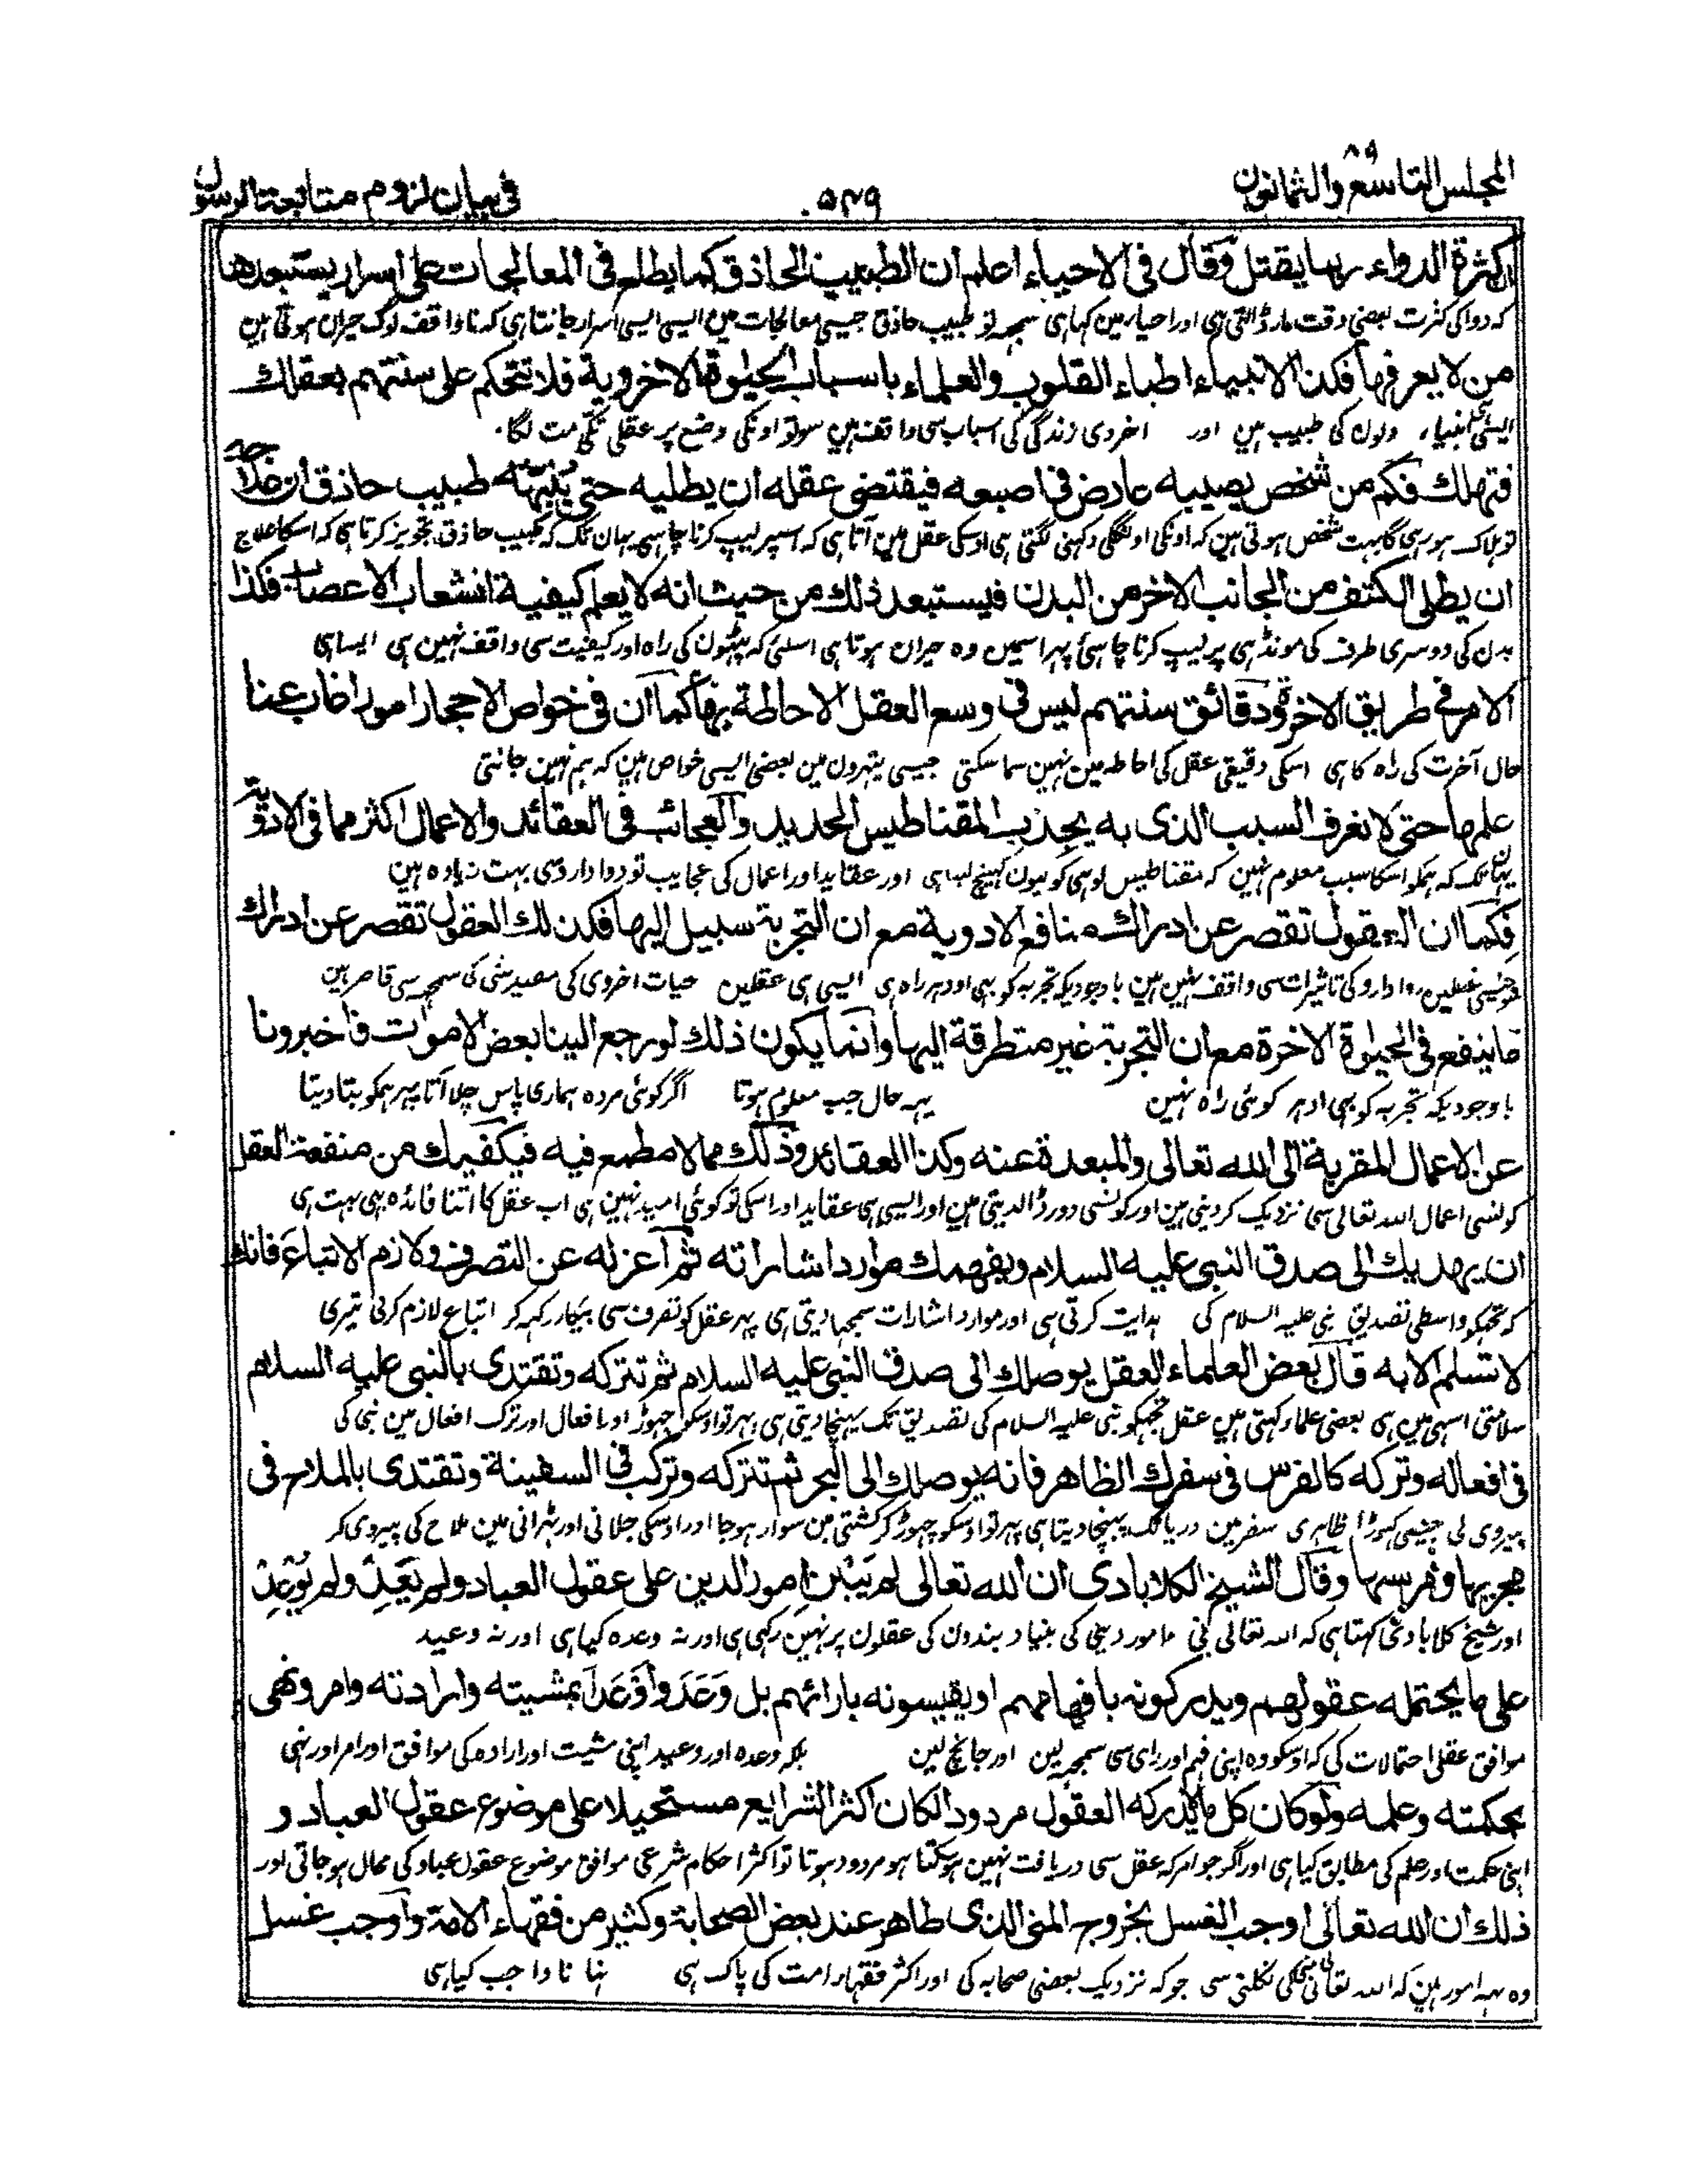 المجلس التاسع والثمانون ٨٩
٥٤٩
فى بيان لزوم متابعة الرسول
كثرة الدواء ربما يقتل وقال فى الاحياء اعلم ان الطبيب الحاذق كما يطلع فى المعالجات على اسرار يستبعدها
كہ دوا کی کثرت بعضی وقت مار ڈالتی ہی اور احیاء مین کہا ہی سمجہ لو طبیب حاذق جیسی معالجات مین ایسی ایسی اسرار جانتا ہی کہ ناواقف لوگ حیران ہوتی ہین
من لا يعرفها فكذا الانبياء اطباء القلوب والعلماء باسباب الحيوة الاخروية فلا تتحكم على سنتهم بعقلك
ایسی انبیاء دلون کی طبیب ہین اور اخروی زندگی کی اسباب سی واقف ہین سو تو اونکی وضع پر عقلی تکی مت لگا
فتهلك فكم من شخص يصيبه عارض فى اصبعه فيقتضى عقله ان يطليه حتى ينبهه طبيب حاذق ان علاجه
تو ہلاک ہو رہی گا بہت شخص ہوتی ہین کہ اونکی اونگلی دکہنی لگتی ہی اوسکی عقل مین آتا ہی کہ اسپر لیپ کرنا چاہی یہان تک کہ طبیب حاذق تجویز کرتا ہی کہ اسکا علاج
ان يطلى الكتف من الجانب الاخر من البدن فيستبعد ذلك من حيث انه لا يعلم كيفية انشعاب الاعصاب فكذا
بدن کی دوسری طرف کی مونڈہی پر لیپ کرنا چاہئی پہر اسمین وہ حیران ہوتا ہی اسلئی کہ پٹہون کی راہ اور کیفیت سی واقف نہین ہی ایسا ہی
الامر فى طريق الاخرة ودقائق سنتهم ليس فى وسع العقل الاحاطة بها كما ان فى خواص الاحجار امورا غاب عنا
حال آخرت کی راہ کا ہی اسکی دقیقی عقل کی احاطہ مین نہین سما سکتی جیسی پتہرون مین بعضی ایسی خواص ہین کہ ہم نہین جانتی
علمها حتى لا نعرف السبب الذى به يجذب المقناطيس الحديد والعجائب فى العقائد والاعمال اكثر مما فى الادوية
یہانتک کہ ہمکو اسکا سبب معلوم نہین کہ مقناطیس لوہی کو کیون کہینچ لیتا ہی اور عقاید اور اعمال کی عجایب تو دوا دارو سی بہت زیادہ ہین
فكما ان العقول تقصر عن ادراك منافع الادوية مع ان التجربة سبيل اليها فكذلك العقول تقصر عن ادراك
جیسی عقلین دوا دارو کی تاثیرات سی واقف نہین ہین باوجودیکہ تجربہ کو بہی اودہر راہ ہی ایسی ہی عقلین حیات اخروی کی مفید شی کی سمجہ سی قاصر ہین
ما ينفع فى الحيوة الاخرة مع ان التجربة غير متطرقة اليها وانما يكون ذلك لو رجع الينا بعض الاموات فاخبرونا
باوجودیکہ تجربہ کو بہی ادہر کوئی راہ نہین یہہ حال جب معلوم ہوتا اگر کوئی مردہ ہماری پاس چلا آتا پہر ہمکو بتا دیتا
عن الاعمال المقربة الى الله تعالى والمبعدة عنه وكذا العقائد وذلك مما لا مطمع فيه فيكفيك من منفعة العقل
کونسی اعمال اللہ تعالی سی نزدیک کر دیتی ہین اور کونسی دور ڈالدیتی ہین اور ایسی ہی عقاید اور اسکی تو کوئی امید نہین ہی اب عقل کا اتنا فائدہ بہی بہت ہی
ان يهديك الى صدق النبى عليه السلام ويفهمك موارد اشاراته ثم اعزله عن التصرف ولازم الاتباع فانك
کہ تجہکو واسطی تصدیق نبی علیہ السلام کی ہدایت کرتی ہی اور موارد اشارات سمجہا دیتی ہی پہر عقل کو تصرف سی بیکار رکہہ کر اتباع لازم کرلی تیری
لا تسلم الا به قال بعض العلماء العقل يوصلك الى صدق النبى عليه السلام ثم تتركه وتقتدى بالنبى عليه السلام
سلامتی اسہی مین ہی بعضی علماء کہتی ہین عقل تجہکو نبی علیہ السلام کی تصدیق تک پہنچا دیتی ہی پہر تو اوسکو چہوڑ اور افعال اور ترک افعال مین نبی کی
فى افعاله وتركه كالفرس فى سفرك الظاهر فانه يوصلك الى البحر ثم تتركه وتركب فى السفينة وتقتدى بالملاح فى
پیروی کی جیسی گہوڑا ظاہری سفر مین دریا تک پہنچا دیتا ہی پہر تو اوسکو چہوڑ کر کشتی مین سوار ہو جا اور اوسکی چلانی اور ٹہرانی مین ملاح کی پیروی کر
مجريها ومرسها وقال الشيخ الكلابادى ان الله تعالى لم يبن امور الدين على عقول العباد ولم يعد ولم يوعد
اور شیخ کلابادی کہتا ہی کہ اللہ تعالی نی امور دینی کی بنیاد بندون کی عقلون پر نہین رکہی ہی اور نہ وعدہ کیا ہی اور نہ وعید
على ما يحتمله عقولهم ويدركونه بافهامهم او يقيسونه بارائهم بل وعد واوعد بمشيته وارادته وامر ونهى
موافق عقلی احتمالات کی کہ اوسکو وہ اپنی فہم اور رای سی سمجہہ لین اور جانچ لین بلکہ وعدہ اور وعید اپنی مشیت اور ارادہ کی موافق اور امر اور نہی
بحكمته وعلمه ولو كان كل ما لا يدركه العقول مردودا لكان اكثر الشرايع مستحيلا على موضوع عقول العباد و
اپنی حکمت اور علم کی مطابق کیا ہی اور اگر جو امر کہ عقل سی دریافت نہین ہو سکتا ہو مردود ہوتا تو اکثر احکام شرعی موافق موضوع عقول عباد کی محال ہو جاتی اور
ذلك ان الله تعالى اوجب الغسل بخروج المنى الذى طاهر عند بعض الصحابة وكثير من فقهاء الامة واوجب غسل
وہ یہہ امور ہین کہ اللہ تعالی منی کی نکلنی سی جو کہ نزدیک بعضی صحابہ کی اور اکثر فقہاء امت کی پاک ہی نہانا واجب کیا ہی